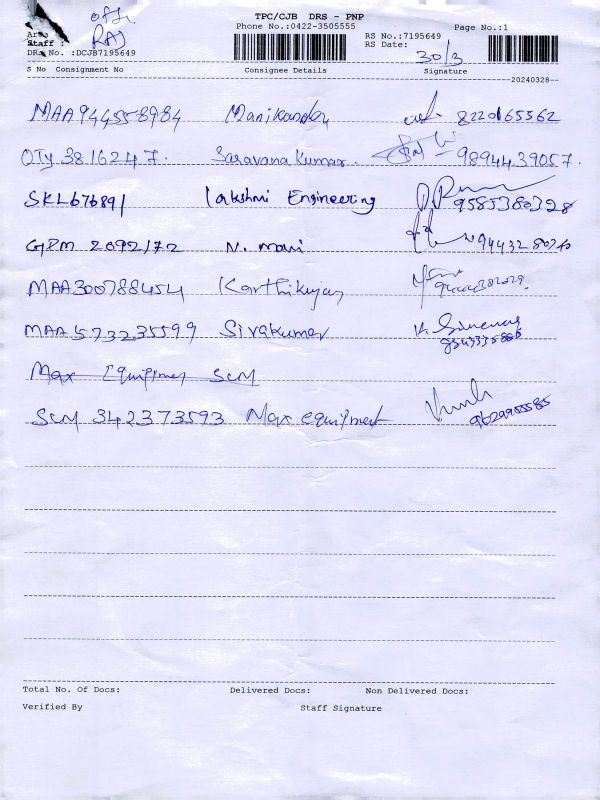 off.
RAJ
TPC/CJB DRS - PNP
Phone No.:0422-3505555
RS No.:7195649
Page No.:1
Area
Staff :
RS Date: 30/3
DRS No. :DCJB7195649
S No Consignment No Consignee Details Signature
20240328
MAA944558984 Manikandan 8220165562
QTY 3816247. Saravana Kumar. 9894439057.
SKL676891 Lakshmi Engineering 9585380328
GPM 2092172 N. Mani
MAA300788454 Karthikeyan
MAA573235599 Sivakumar
Max Equipmen SCM
SCM 342373593 Max equipment 9629955585
Total No. Of Docs: Delivered Docs: Non Delivered Docs:
Verified By Staff Signature